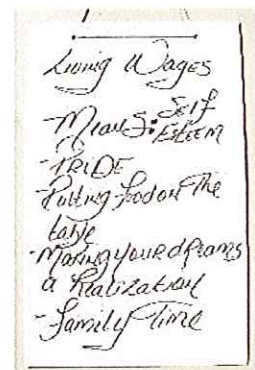 Living Wages
Means: Self
Esteem
- PRIDE
- Putting food on The
table
- Making your dreams
a Realization
- Family Time